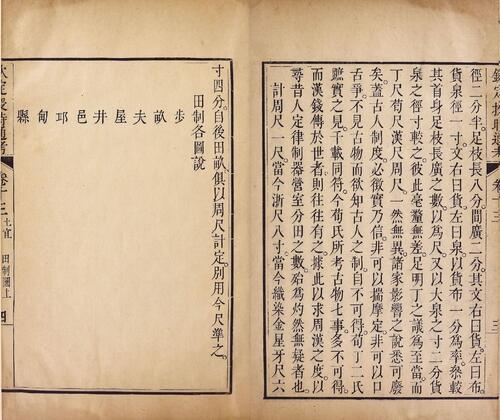 徑二分半足枝長八分間廣二分其文右曰貨左曰布
貨泉徑一寸文右曰貨左曰泉以貨布一分爲率叅較
其首身足枝長廣之數以爲尺又以大泉之寸二分貨
泉之徑寸較之彼此毫釐無差足明丁之議爲至當而
丁尺荀尺漢尺周尺一然無異諸家影響之說悉可廢
矣蓋古人制度必徵實乃信非可以揣摩定非可以口
舌爭不見古物而欲知古人之制自不可得荀丁二氏
贓實之見千載同符今荀氏所考古物七事多不可得
而漢錢傳於世者則往往有之據此以求周漢之度以
尋昔人定律制器營室分田之數殆爲灼然無疑者也
計周尺一尺當今浙尺八寸當今織染金星牙尺六
欽定授時通考 卷十三
三
寸四分自後田畝俱以周尺計定別用今尺準之
田制各圖說
步畝夫屋井邑邱甸縣
欽定授時通考 卷十三 土宜 田制圖上 四